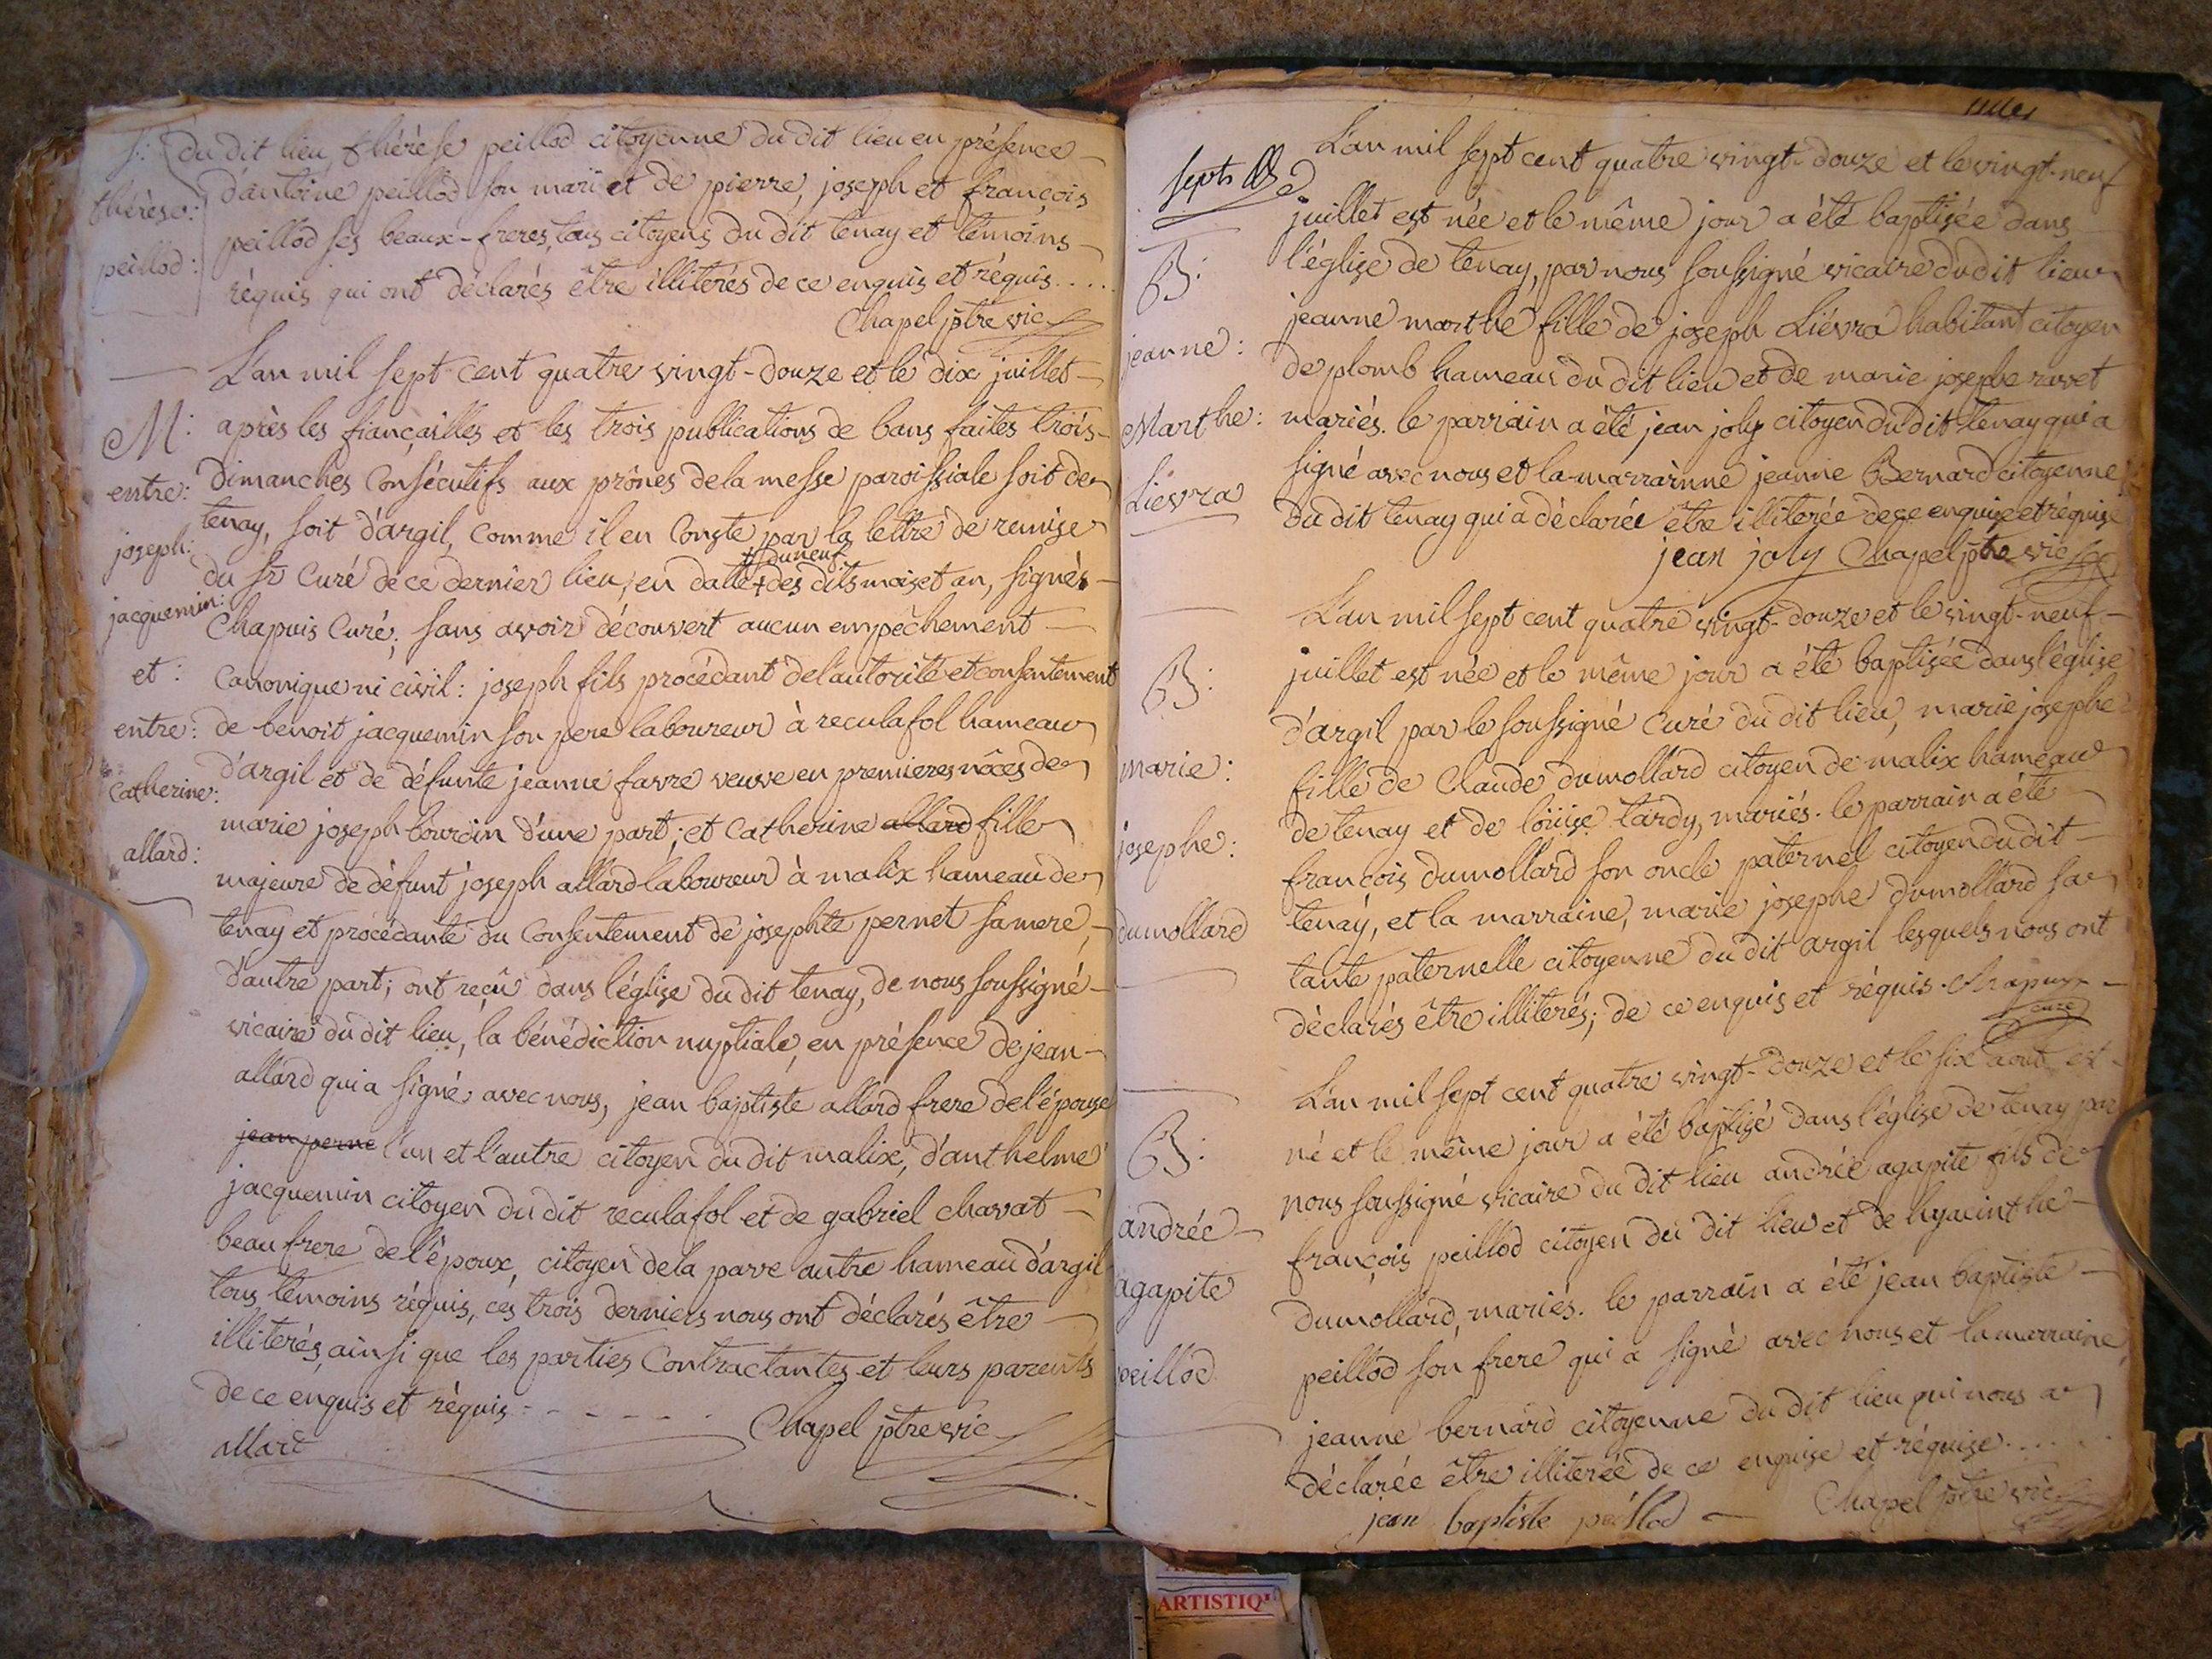 S:
thérèse:
peillod:
du dit lieu, thérése peillod citoyenne du dit lieu en présence
d'antoine peillod son mari et de pierre, joseph et françois
peillod ses beaux-freres, tous citoyens du dit tenay et témoins
réquis qui ont déclarés être illiterés de ce enquis et réquis.....
Chapel ptre vic
M:
entre:
joseph:
jacquemin:
et:
entre:
Catherine:
allard:
L'an mil sept cent quatre vingt-douze et le dix juillet
après les fiançailles et les trois publications de bans faites trois
dimanches Consécutifs aux prônes de la messe paroissiale soit de
tenay, soit d'argil, Comme il en Conste par la lettre de remise
# du neuf
du Sr Curé de ce dernier lieu, en datte # des dits mois et an, signés
Chapuis Curé; sans avoir découvert aucun empêchement
Canonique ni civil: joseph fils procédant de l'autorité et consentement
de benoit jacquemin son pere laboureur à reculafol hameau
d'argil et de défunte jeanne favre veuve en premieres nôces de
marie joseph bourdin d'une part; et Catherine allard fille
majeure de défunt joseph allard laboureur à malix hameau de
tenay et procédante du Consentement de josephte pernet sa mere,
d'autre part; ont reçû dans l'église du dit tenay, de nous soussigné
vicaire du dit lieu, la bénédiction nuptiale, en présence de jean
allard qui a signé avec nous, jean baptiste allard frere de l'épouse
jean perne l'un et l'autre citoyen du dit malix, d'anthelme
jacquemin citoyen du dit reculafol et de gabriel chavat
beau frere de l'époux, citoyen de la parve autre hameau d'argil
tous témoins réquis, ces trois derniers nous ont déclarés être
illiterés, ainsi que les parties Contractantes et leurs parents
de ce enquis et réquis
allard
Chapel ptre vic
sept
B:
jeanne:
Marthe:
Liévra
L'an mil sept cent quatre vingt-douze et le vingt-neuf
juillet est née et le même jour a été baptisée dans
l'église de tenay, par nous soussigné vicaire du dit lieu
jeanne marthe fille de joseph Liévra habitant citoyen
de plomb hameau du dit lieu et de marie josephe ravet
mariés. le parrain a été jean joly citoyen du dit tenay qui a
signé avec nous et la marrainne jeanne Bernard citoyenne
du dit tenay qui a déclarée être illiterée de ce enquise et réquise
jean joly Chapel ptre vic
B:
marie:
josephe:
dumollard
L'an mil sept cent quatre vingt-douze et le vingt-neuf
juillet est née et le même jour a été baptisée dans l'église
d'argil par le soussigné Curé du dit lieu, marie josephe
fille de Claude dumollard citoyen de malix hameau
de tenay et de loüise tardy, mariés. le parrain a été
françois dumollard son oncle paternel citoyen du dit
tenay, et la marraine, marie josephe dumollard sa
tante paternelle citoyenne du dit argil lesquels nous ont
déclarés être illiterés; de ce enquis et réquis. Chapuis
curé
B:
andrée
agapite
peillod
L'an mil sept cent quatre vingt-douze et le six aout est
né et le même jour a été baptisé dans l'église de tenay par
nous soussigné vicaire du dit lieu andrée agapite fils de
françois peillod citoyen du dit lieu et de hyacinthe
dumollard, mariés. le parrain a été jean baptiste
peillod son frere qui a signé avec nous et la marraine
jeanne bernard citoyenne du dit lieu qui nous a
déclarée être illiterée de ce enquise et réquise.....
jean baptiste peillod
Chapel ptre vic
ARTISTIQ